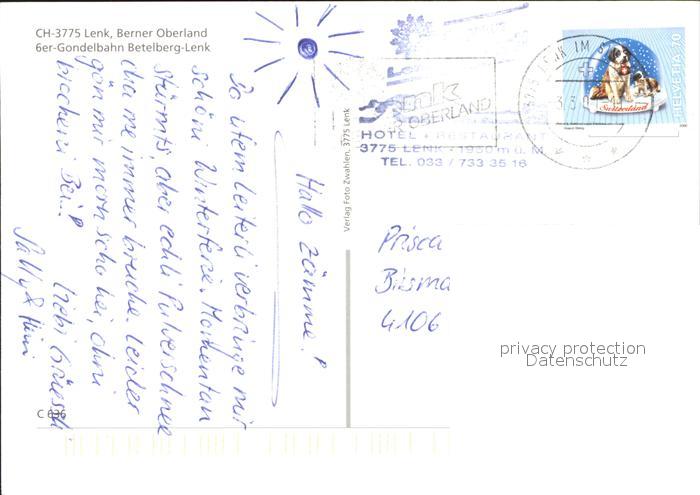 CH-3775 Lenk, Berner Oberland
6er-Gondelbahn Betelberg-Lenk
Hallo Zämme!
So ufem Leiterli verbringe mir
schöni Winterferie. Momentan
stürmts, aber echli Pulverschnee
cha me immer bruche. Leider
gön mir morn scho hei, ohni
Bei..!
Liebi Grüessli
Sally &
Verlag Foto Zwahlen, 3775 Lenk
C 636
OBERLAND
HOTEL + RESTAURANT
3775 LENK - 1950 m ü. M
TEL. 033 / 733 35 16
3775 LENK IM
HELVETIA 70
Switzerland
Prisca
4106
privacy protection
Datenschutz